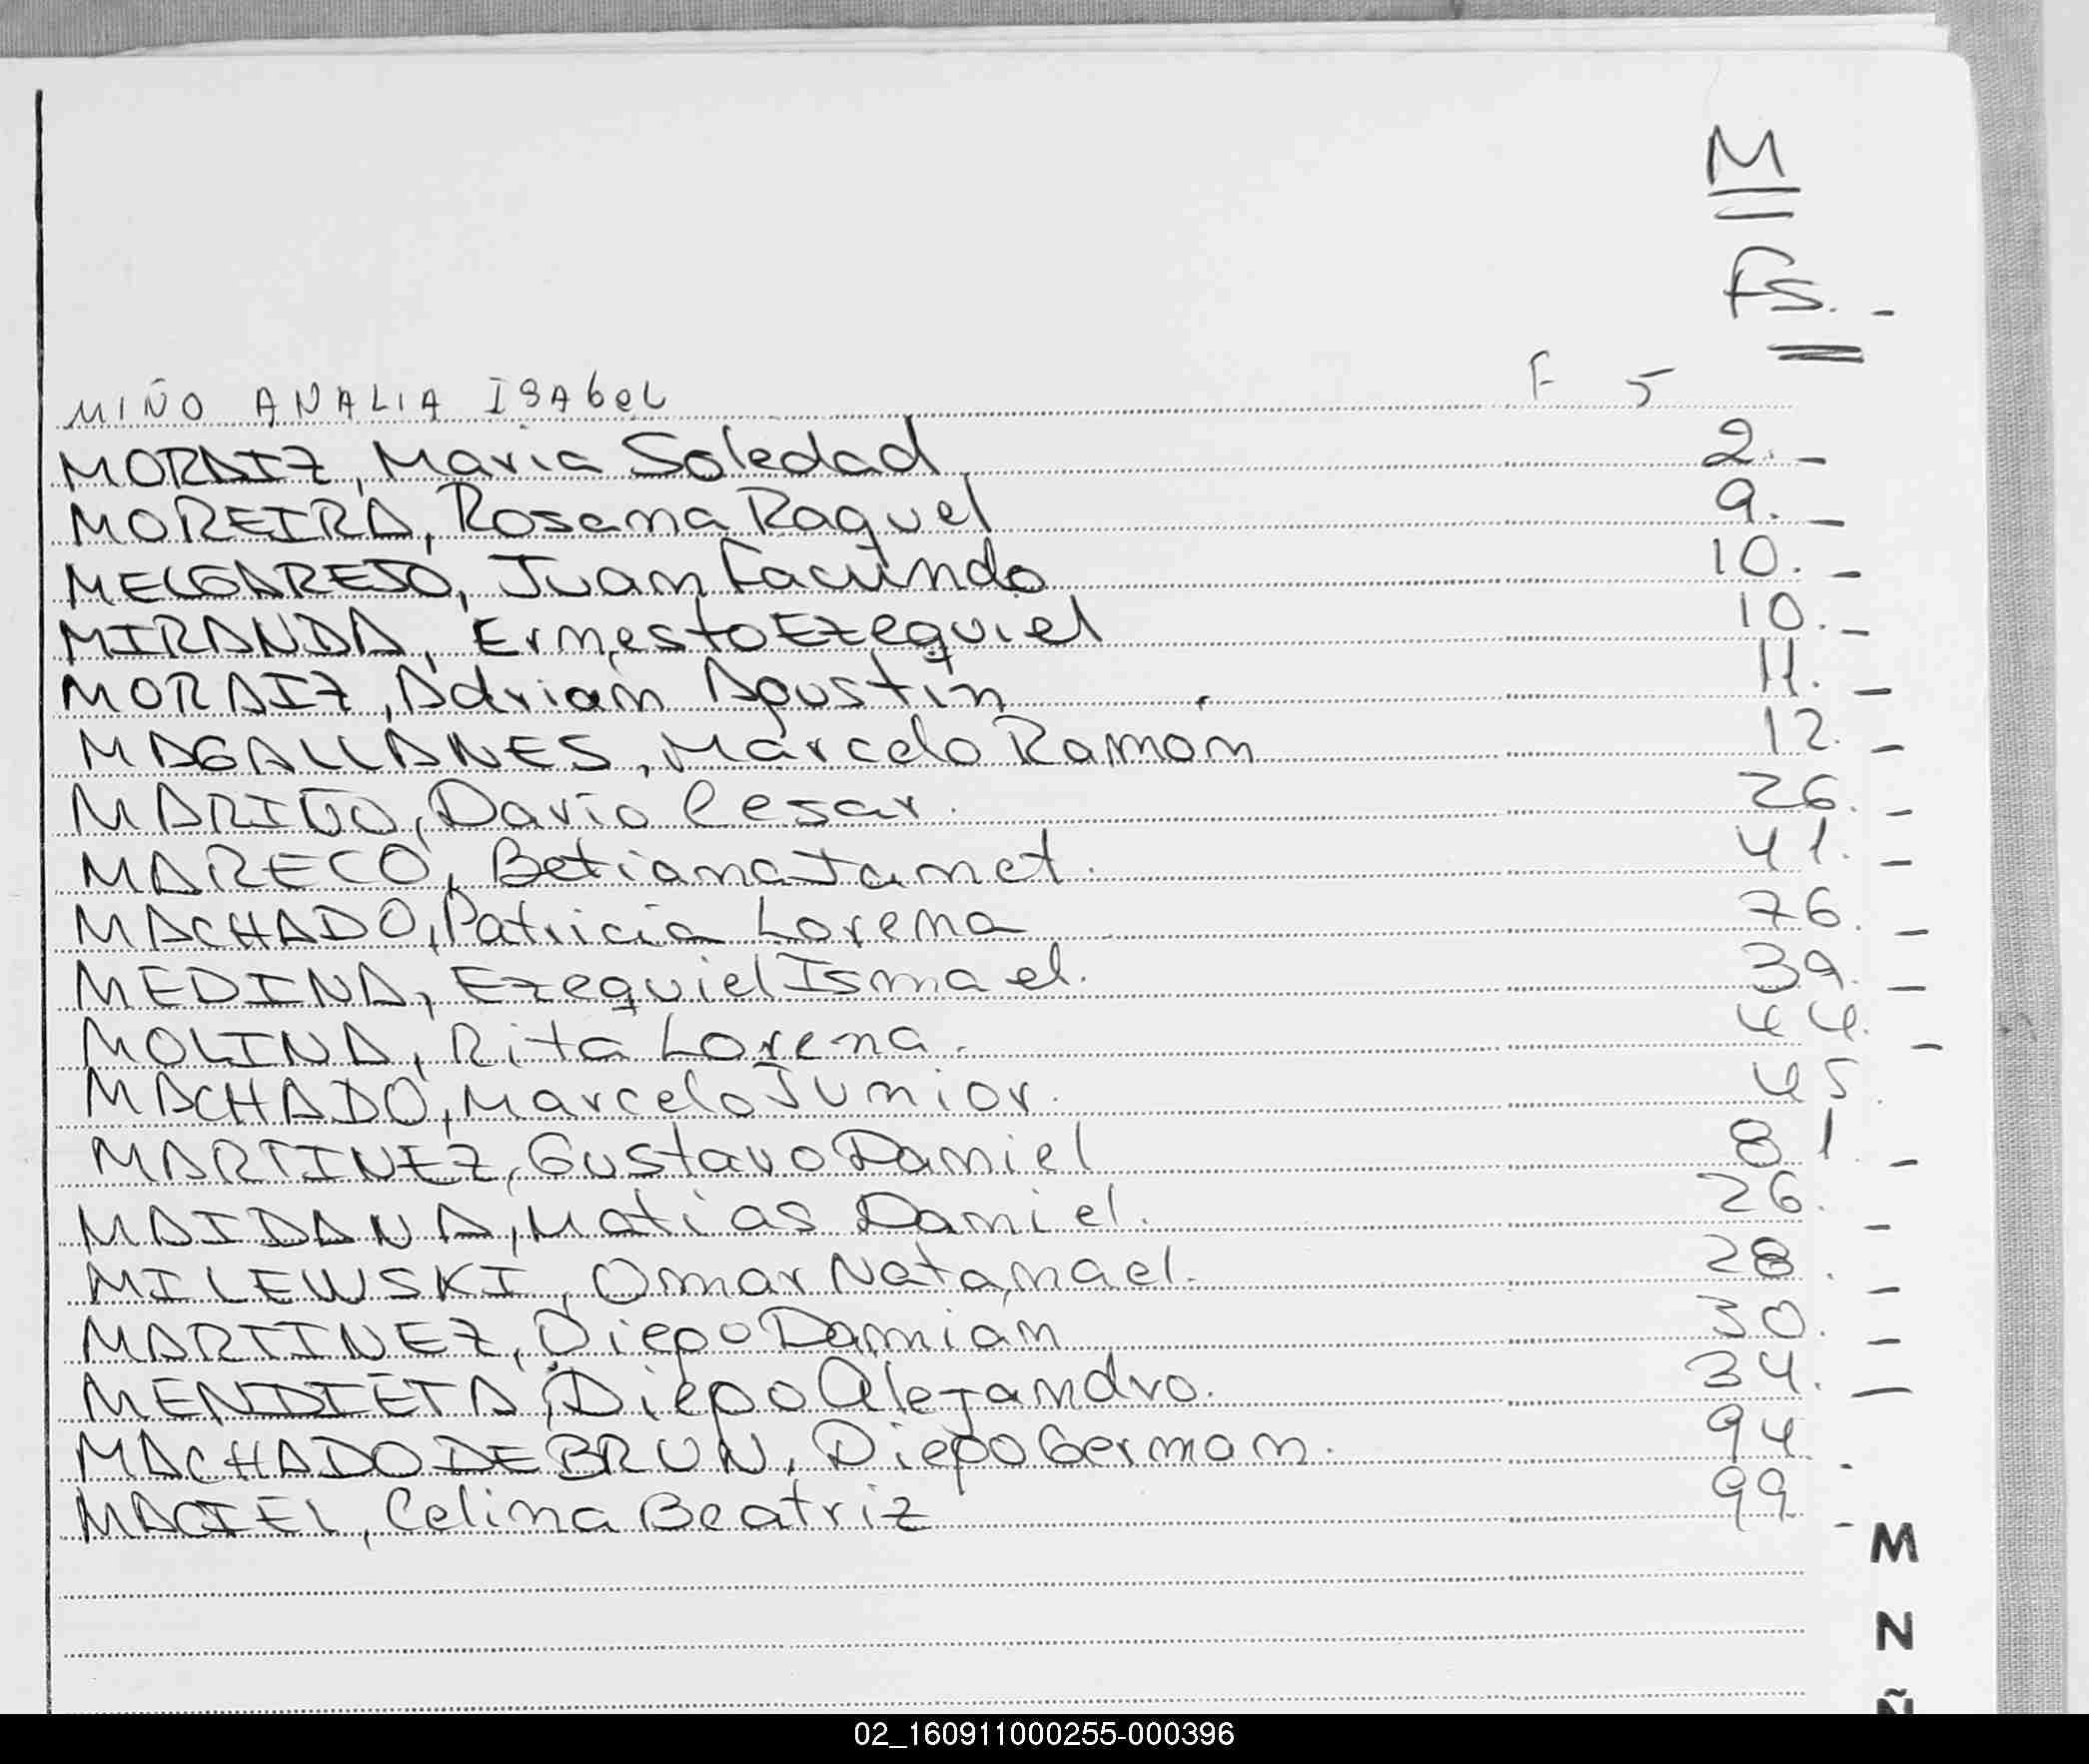 M
Fs. -
MIÑO ANALIA ISAbeL F 5
MORAIZ, Maria Soledad 2. -
MOREIRA, Rosana Raquel 9. -
MELGAREJO, Juan Facundo 10. -
MIRANDA, Ernesto Ezequiel 10. -
MORAIZ, Adrian Agustin 11. -
MAGALLANES, Marcelo Ramon 12. -
MARIÑO, Dario Cesar. 26. -
MARECO, Betiana Janet. 41. -
MACHADO, Patricia Lorena 76. -
MEDINA, Ezequiel Ismael. 39. -
MOLINA, Rita Lorena. 44. -
MACHADO, Marcelo Junior. 45.
MARTINEZ, Gustavo Daniel 81. -
MAIDANA, Matias Daniel. 26. -
MILEWSKI, Omar Natanael. 28. -
MARTINEZ, Diego Damian 30. -
MENDIETA, Diego Alejandro. 34. -
MACHADO DE BRUN, Diego German. 94. -
MACIEL, Celina Beatriz 99. -
M
N
Ñ
02_160911000255-000396